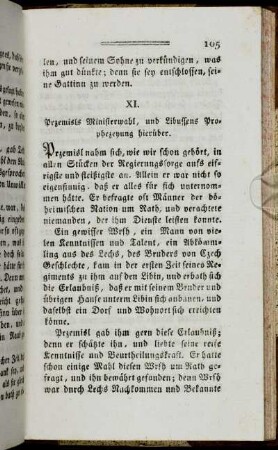 105
len, und seinem Sohne zu verkündigen, was
ihm gut dünkte; denn sie sey entschlossen, sei-
ne Gattinn zu werden.
XI.
Przemisls Ministerwahl, und Libussens Pro-
phezeyung hierüber.
Przemisl nahm sich, wie wir schon gehört, in
allen Stücken der Regierungssorge aufs eif-
rigste und fleißigste an. Allein er war nicht so
eigensinnig, daß er alles für sich unternom-
men hätte. Er befragte oft Männer der bö-
heimischen Nation um Rath, und verachtete
niemanden, der ihm Dienste leisten konnte.
Ein gewisser Wrsh, ein Mann von vie-
len Kenntnissen und Talent, ein Abköm̄m-
ling aus des Lechs, des Bruders von Czech
Geschlechte, kam in der ersten Zeit seines Re-
giments zu ihm auf den Libin, und erbath sich
die Erlaubniß, daß er mit seinem Bruder und
übrigen Hause unterm Libin sich anbauen, und
daselbst ein Dorf und Wohnort sich errichten
könne.
Przemisl gab ihm gern diese Erlaubniß;
denn er schätzte ihn, und liebte seine reife
Kenntnisse und Beurtheilungskraft. Er hatte
schon einige Mahl diesen Wrsh um Rath ge-
fragt, und ihn bewährt gefunden; denn Wrsh
war durch Lechs Nachkommen und Bekannte